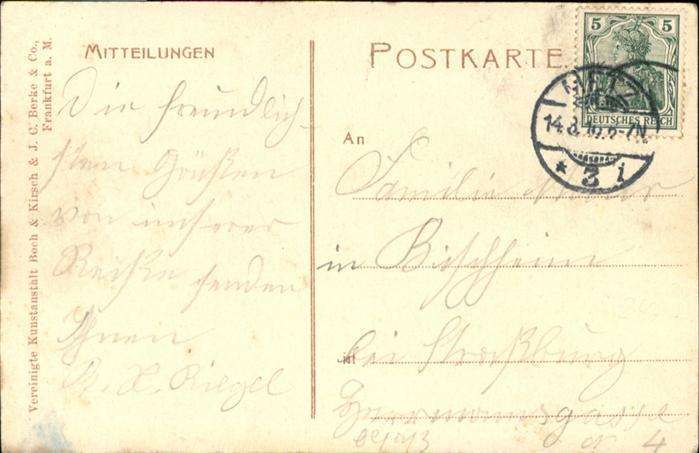 Vereinigte Kunstanstalt Boch & Kirsch & J. C. Berke & Co.,
Frankfurt a. M.
MITTEILUNGEN
Die freundlich-
sten Grüßen
von unserer
Reise senden
Ihnen
Riegel
POSTKARTE
5 5
DEUTSCHES REICH
METZ
14.8.10. 6-7N.
* 3 i
An
Familie
in Bischheim
in
bei Straßburg
Hermannsgasse
N 4